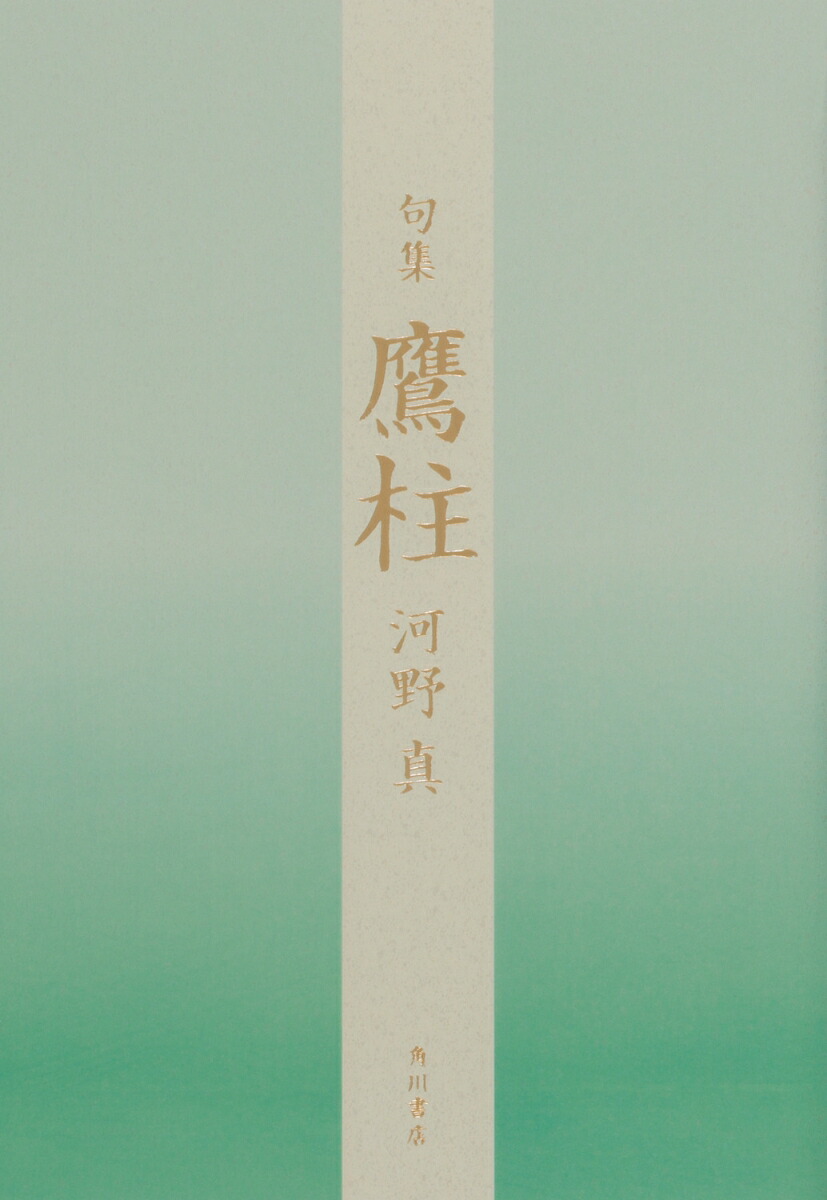 句集
鷹柱
河野真
角川書店